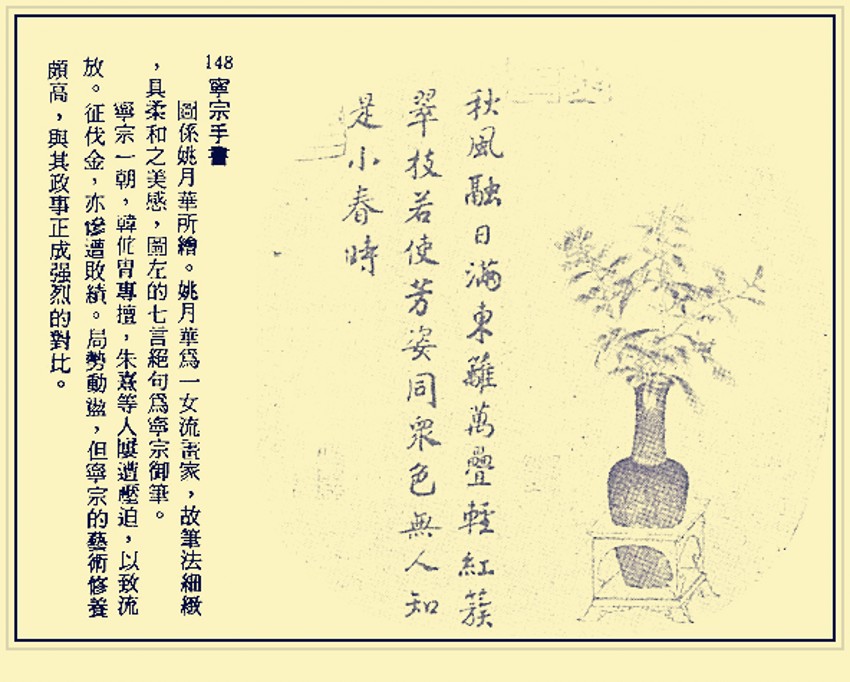 秋風融日滿東籬萬疊輕紅簇
翠枝若使芳姿同衆色無人知
是小春時
148寧宗手書
圖係姚月華所繪。姚月華爲一女流畫家，故筆法細緻
，具柔和之美感，圖左的七言絕句爲寧宗御筆。
寧宗一朝，韓侂冑專擅，朱熹等人屢遭壓迫，以致流
放。征伐金，亦慘遭敗績。局勢動盪，但寧宗的藝術修養
頗高，與其政事正成强烈的對比。